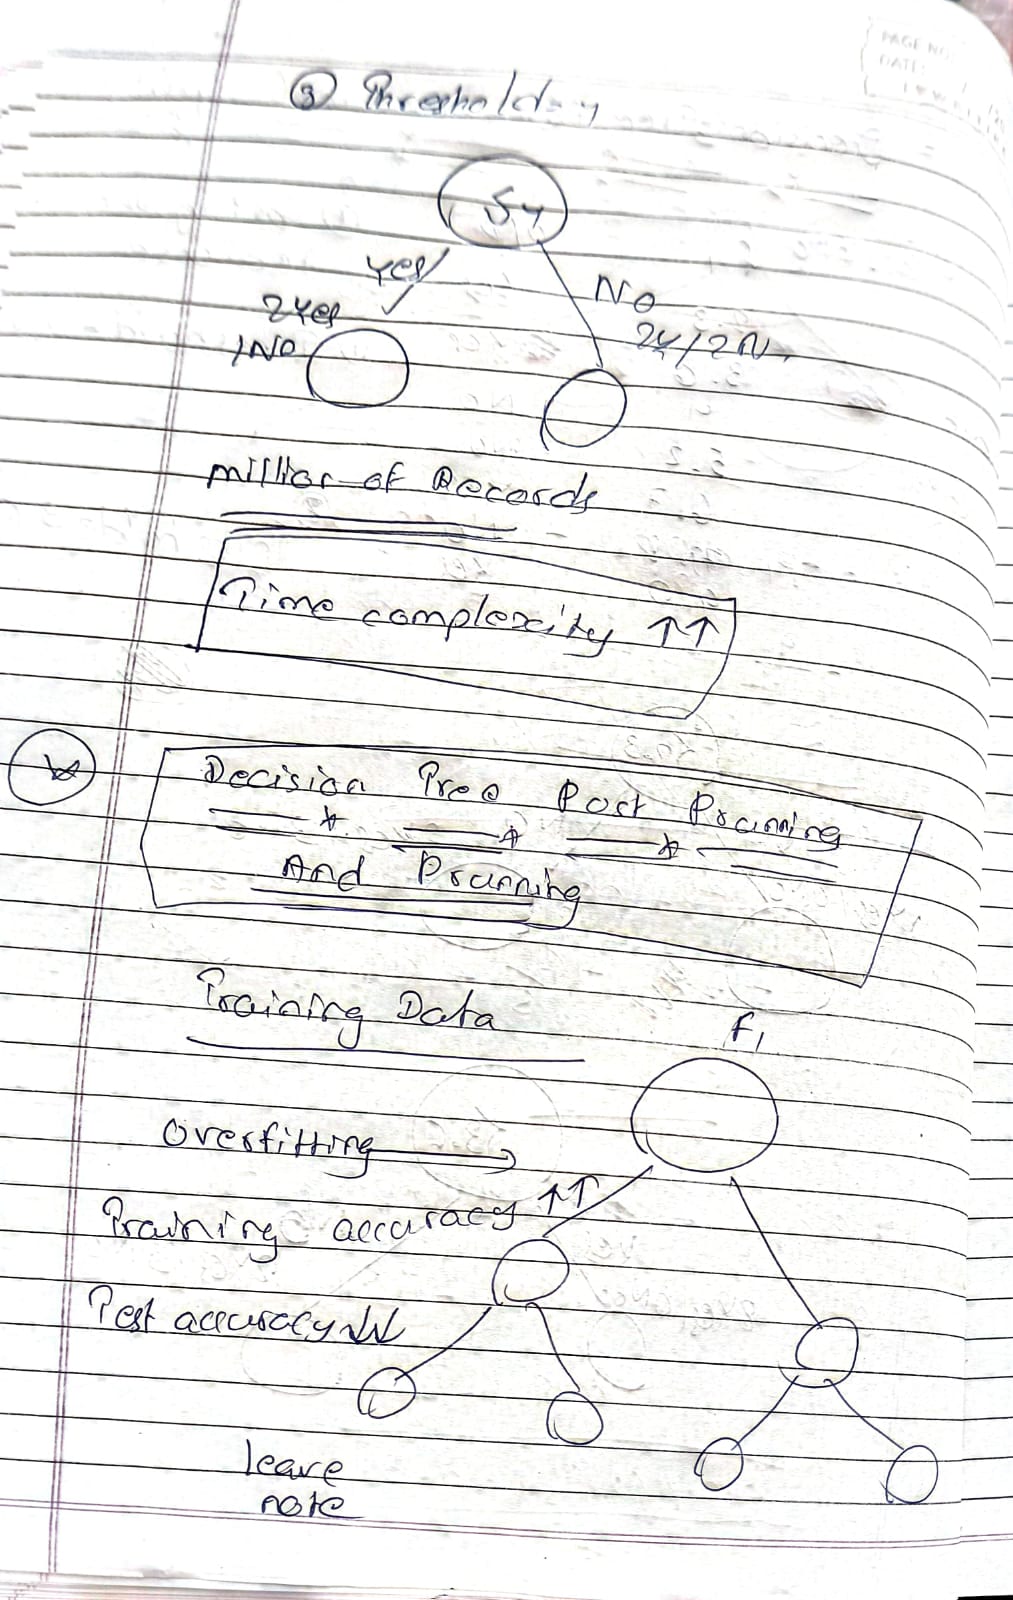 PAGE NO
DATE:
③ Threshold
≤4
Yes
No
2Yes
1No
2Y/2N.
Million of Records
Time complexity ↑↑
Decision Tree Post Prunning
And Prunning
Training Data
f1
Overfitting →
Training accuracy ↑↑
Test accuracy ↓↓
leave
note